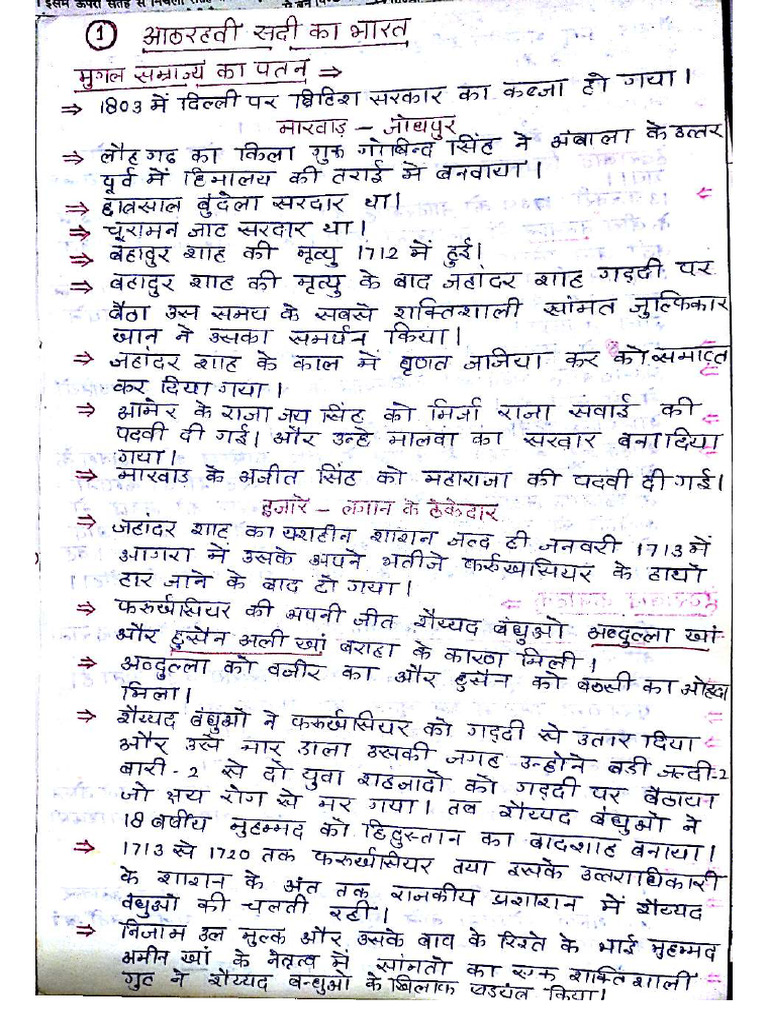 इसमें ऊपरी सतह से निचली सतह
① आठरहवी सदी का भारत
मुगल सम्राज्य का पतन ⇒
⇒ 1803 में दिल्ली पर ब्रिटिश सरकार का कब्जा हो गया।
मारवाड़ – जोधपुर
⇒ लौहगढ का किला गुरु गोबिन्द सिंह ने अंबाला के उत्तर
पूर्व में हिमालय की तराई में बनवाया।
⇒ छत्रसाल बुंदेला सरदार था।
⇒ चूरामन जाट सरदार था।
⇒ बहादुर शाह की मृत्यु 1712 में हुई।
⇒ बहादुर शाह की मृत्यु के बाद जहांदर शाह गद्दी पर
बैठा उस समय के सबसे शक्तिशाली सांमत जुल्फिकार
खान ने उसका समर्थन किया।
⇒ जहांदर शाह के काल में घृणत जाजिया कर को समाप्त
कर दिया गया।
⇒ आमेर के राजा जय सिंह को मिर्जा राजा सवाई की
पदवी दी गई। और उन्हे मालवा का सरदार बना दिया
गया।
⇒ मारवाड के अजीत सिंह को महाराजा की पदवी दी गई।
इजारे – लगान के ठेकेदार
⇒ जहांदर शाह का यशहीन शाशन जल्द ही जनवरी 1713 में
आगरा में उसके अपने भतीजे फर्रुखासियर के हाथो
हार जाने के बाद हो गया।
⇒ फरुर्खासियर की अपनी जीत शैय्यद बंधुओ अब्दुल्ला खां
और हुसैन अली खां बराहा के कारण मिली।
⇒ अब्दुल्ला को वजीर का और हुसैन को बख्सी का ओहदा
मिला।
⇒ शैय्यद बंधुओ ने फरुर्खासियर को गद्दी से उतार दिया
और उसे मार डाला उसकी जगह उन्होने बडी जल्दी-2
बारी-2 से दो युवा शहजादो को गद्दी पर बैठाया
जो क्षय रोग से मर गया। तब शैय्यद बंधुओ ने
18 वर्षीय मुहम्मद को हिदुस्तान का बादशाह बनाया।
⇒ 1713 से 1720 तक फरुर्खासियर तथा इसके उत्तराधिकारी
के शाशन के अंत तक राजकीय प्रशाशन में शैय्यद
बंधुओ की चलती रही।
⇒ निजाम उल मुल्क और उसके बाव के रिश्ते के भाई मुहम्मद
अमीन खां के नेतृत्व में सांमतो का एक शक्तिशाली
गुट ने शैय्यद बन्धुओ के खिलाफ षडयंत्र किया।